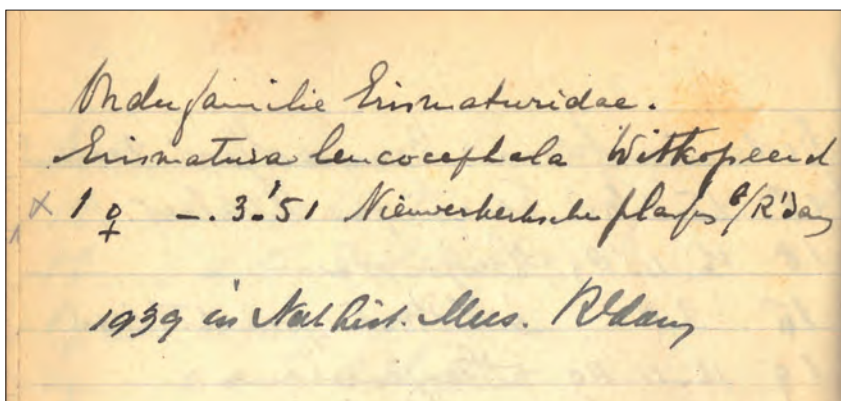 Onderfamilie Erismaturidae.
Erismatura leucocephala Witkopeend
x 1 ♀ —. 3.'51 Nieuwerkerksche R'dam
1939 in Nat. Hist. Mus. R'dam